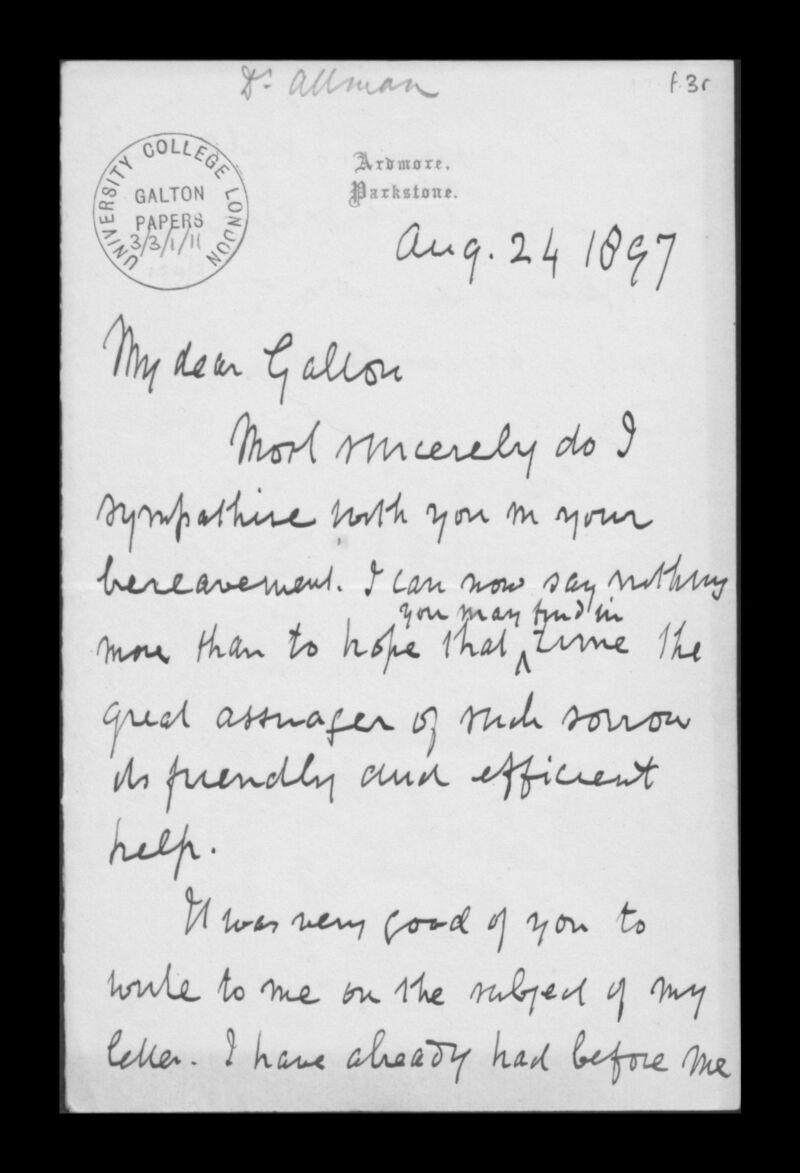 Dr. Allman
f.3r
UNIVERSITY COLLEGE LONDON
GALTON
PAPERS
3/3/1/11
Ardmore.
Parkstone.
Aug. 24 1897
My dear Galton
Most sincerely do I
sympathise with you in your
bereavement. I can now say nothing
you may find in
more than to hope that ^ time the
great assuager of such sorrow
its friendly and efficient
help.
It was very good of you to
write to me on the subject of my
letter. I have already had before me